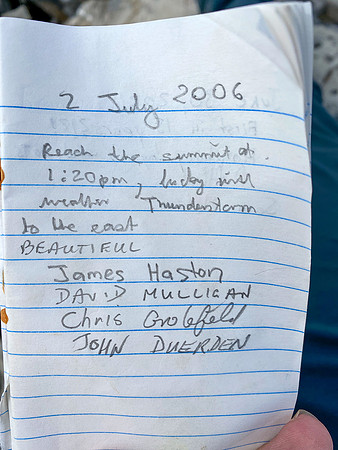 2 July 2006
Reach the summit at.
1:20pm, lucky with
weather Thunderstorm
to the east
BEAUTIFUL
James Haston
DAVID MULLIGAN
Chris
JOHN DUERDEN